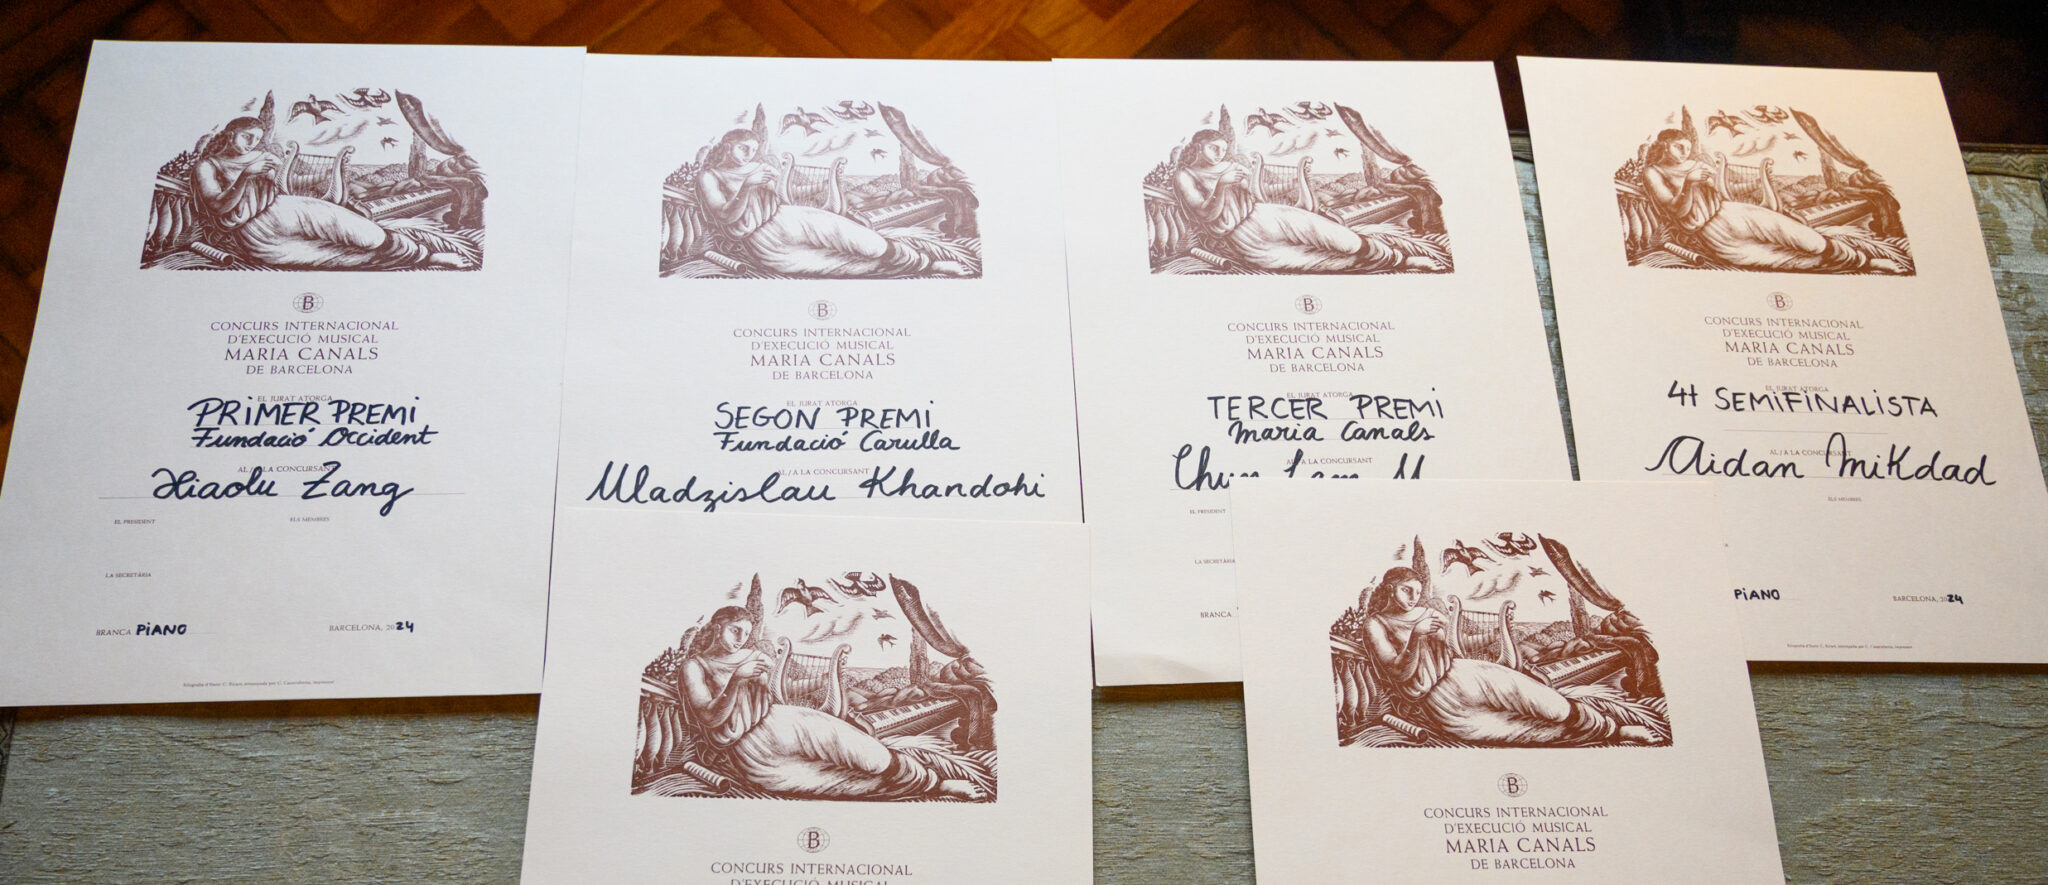 B
CONCURS INTERNACIONAL
D'EXECUCIÓ MUSICAL
MARIA CANALS
DE BARCELONA
EL JURAT ATORGA
PRIMER PREMI
Fundació Occident
AL / A LA CONCURSANT
Xiaolu Zang
EL PRESIDENT
ELS MEMBRES
LA SECRETÀRIA
BRANCA PIANO
BARCELONA, 2024
B
CONCURS INTERNACIONAL
D'EXECUCIÓ MUSICAL
MARIA CANALS
DE BARCELONA
EL JURAT ATORGA
SEGON PREMI
Fundació Carulla
AL / A LA CONCURSANT
Uladzislau Khandohi
B
CONCURS INTERNACIONAL
D'EXECUCIÓ MUSICAL
MARIA CANALS
DE BARCELONA
EL JURAT ATORGA
TERCER PREMI
Maria Canals
AL / A LA CONCURSANT
Chun Lam
EL PRESIDENT
LA SECRETÀRIA
BRANCA
B
CONCURS INTERNACIONAL
D'EXECUCIÓ MUSICAL
MARIA CANALS
DE BARCELONA
EL JURAT ATORGA
4t SEMIFINALISTA
Aidan Mikdad
ELS MEMBRES
PIANO
BARCELONA, 2024
B
CONCURS INTERNACIONAL
D'EXECUCIÓ MUSICAL
B
CONCURS INTERNACIONAL
D'EXECUCIÓ MUSICAL
MARIA CANALS
DE BARCELONA